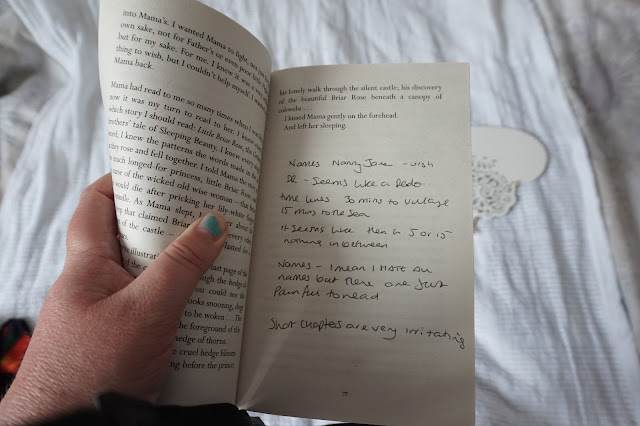 into Mama's. I wanted Mama to fight, not just
own sake, not for Father's or even poor
but for my sake. For me. I knew it was a
thing to wish, but I couldn't help myself. I wanted
Mama back.
Mama had read to me so many times when I was
now it was my turn to read to her. I knew
which story I should read: Little Briar Rose, the
brothers' tale of Sleeping Beauty. I knew every
word; I knew the patterns the words made in the
they rose and fell together. I told Mama the
a much longed for princess, little Briar Rose
curse of the wicked old wise woman – that
would die after pricking her lily-white
As Mama slept,
that claimed Briar
of the castle –
illustrat page of the
of the hedge
you could see the
ooks snoozing, dogs
to be woken . . . The
the foreground of the
hedge of thorns.
e cruel hedge bloom
ng before the prince:
his lonely walk through the silent castle; his discovery
of the beautiful Briar Rose beneath a canopy of
cobwebs . . .
I kissed Mama gently on the forehead.
And left her sleeping.
Names Nanny Jane - wish
DR - Seems like a Pedo
time lines 30 mins to village
15 mins to the sea
it seems like then is 5 or 15
nothing in between
Names - I mean I HATE all
names but these are just
Painful to read
Short Chapters are very irritating
77